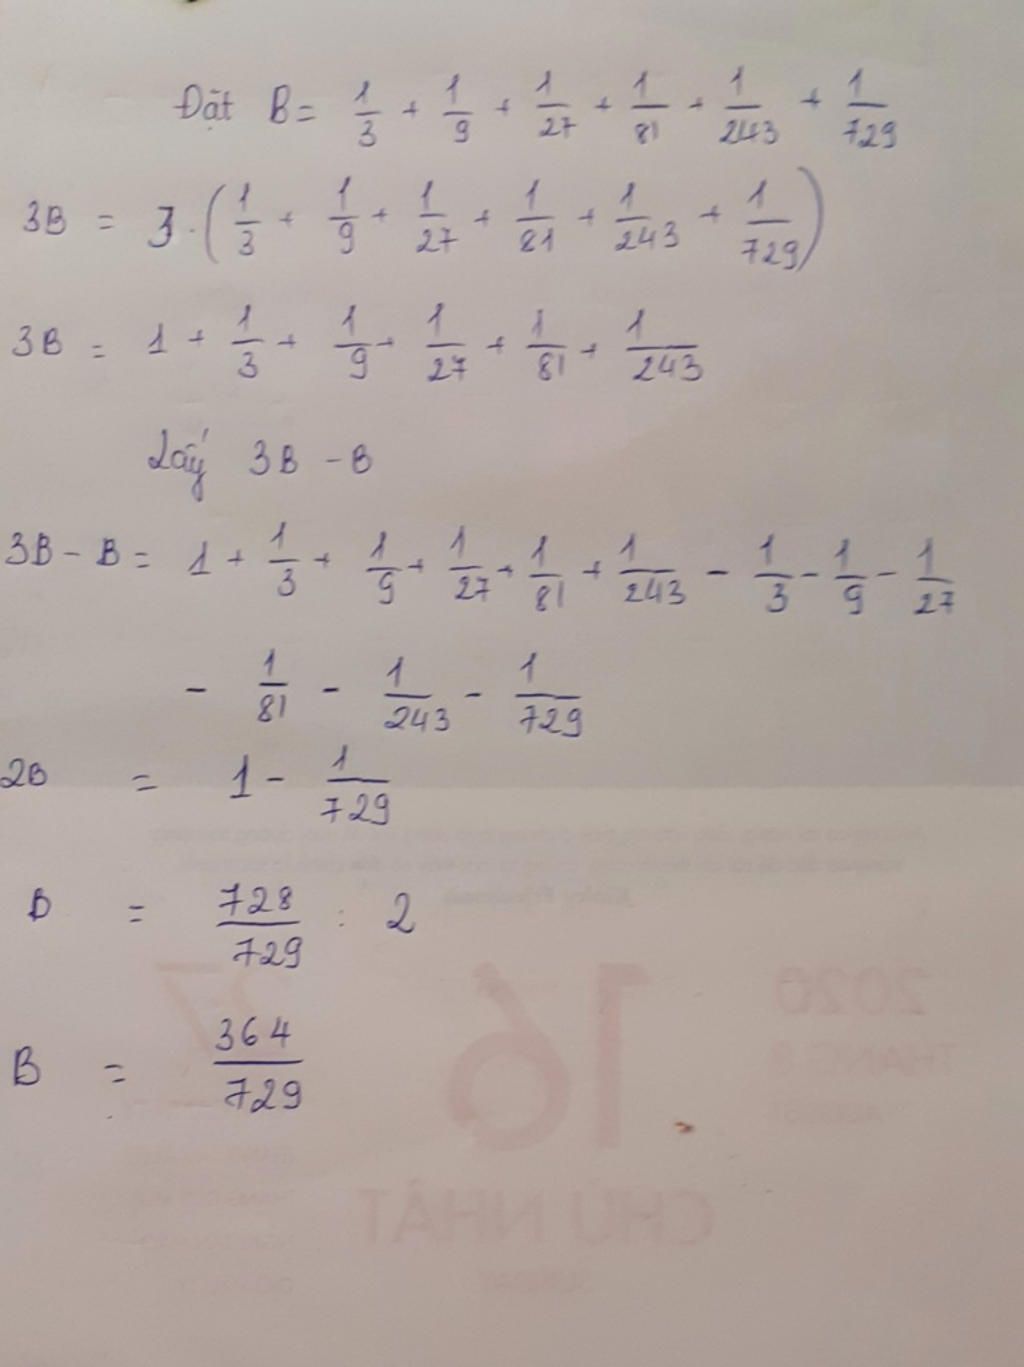 Đặt B = 1/3 + 1/9 + 1/27 + 1/81 + 1/243 + 1/729
3B = 3 . (1/3 + 1/9 + 1/27 + 1/81 + 1/243 + 1/729)
3B = 1 + 1/3 + 1/9 + 1/27 + 1/81 + 1/243
Lấy 3B - B
3B - B = 1 + 1/3 + 1/9 + 1/27 + 1/81 + 1/243 - 1/3 - 1/9 - 1/27
- 1/81 - 1/243 - 1/729
2B = 1 - 1/729
B = 728/729 : 2
B = 364/729
16
27
2020
THÁNG 8
CHỦ NHẬT
SUNDAY